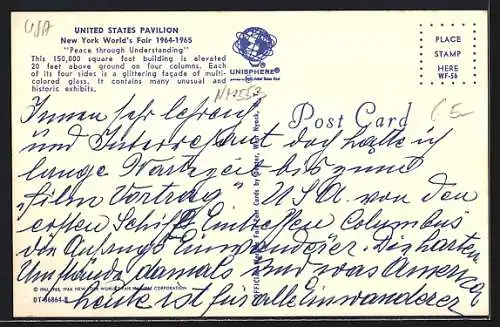 USA
UNITED STATES PAVILION
New York World's Fair 1964-1965
"Peace through Understanding"
This 150,000 square foot building is elevated
20 feet above ground on four columns. Each
of its four sides is a glittering façade of multi-
colored glass. It contains many unusual and
historic exhibits.
UNISPHERE®
PLACE
STAMP
HERE
WF-56
Post Card
Innen sehr lehreich
und Interressant doch hatte ich
lange Wartezeit bis zum
"Film Vortrag" USA. von den
ersten Schiff Eintreffen Columbus
von Anfangs Einwanderer. Die harten
Umstände damals und was America
heute ist für alle Einwanderer
OFFICIAL World's Fair Cards by Dexter, West Nyack,
© 1961, 1962, 1964 NEW YORK WORLD'S FAIR 1964-1965 CORPORATION
DT-86864-B